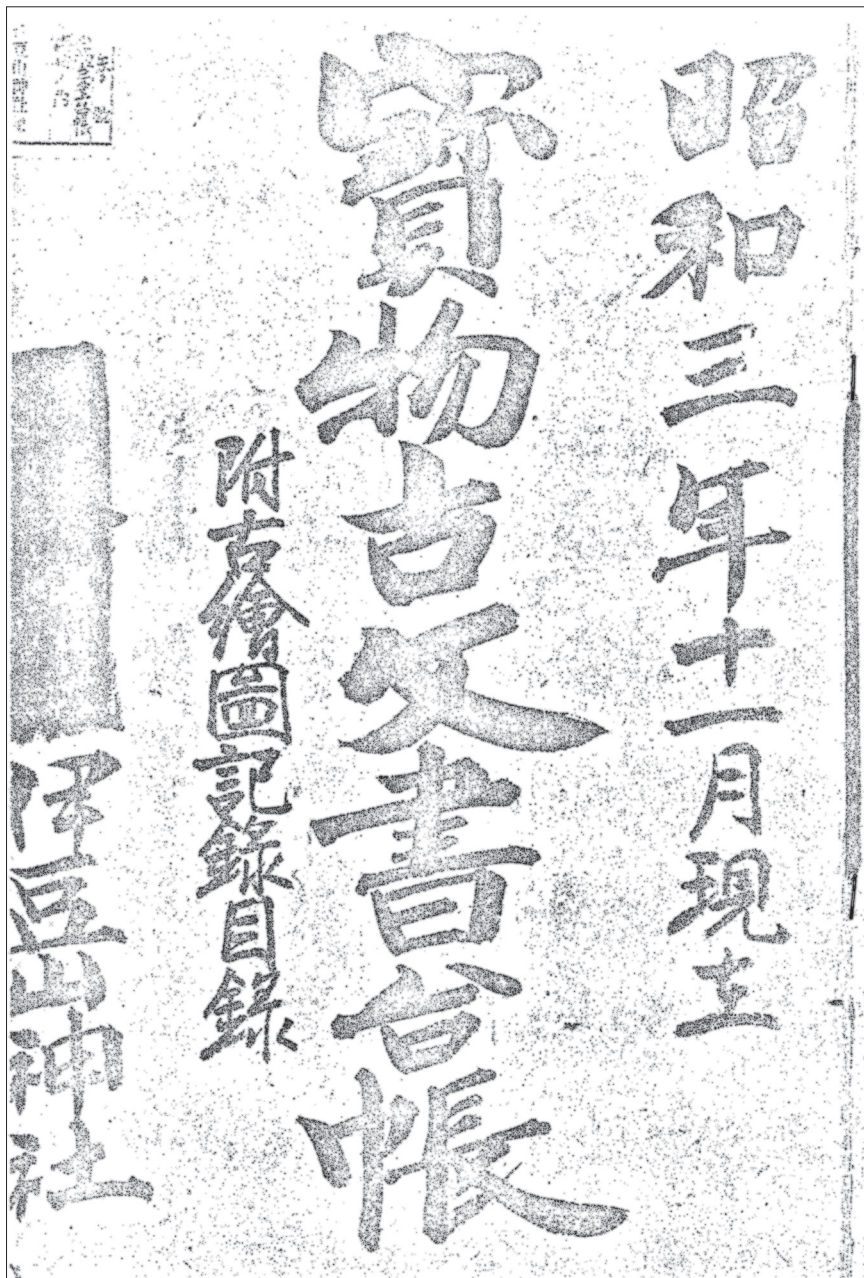 昭和三年十一月現在
寶物古文書台帳
附古繪圖記録目録
伊豆山神社